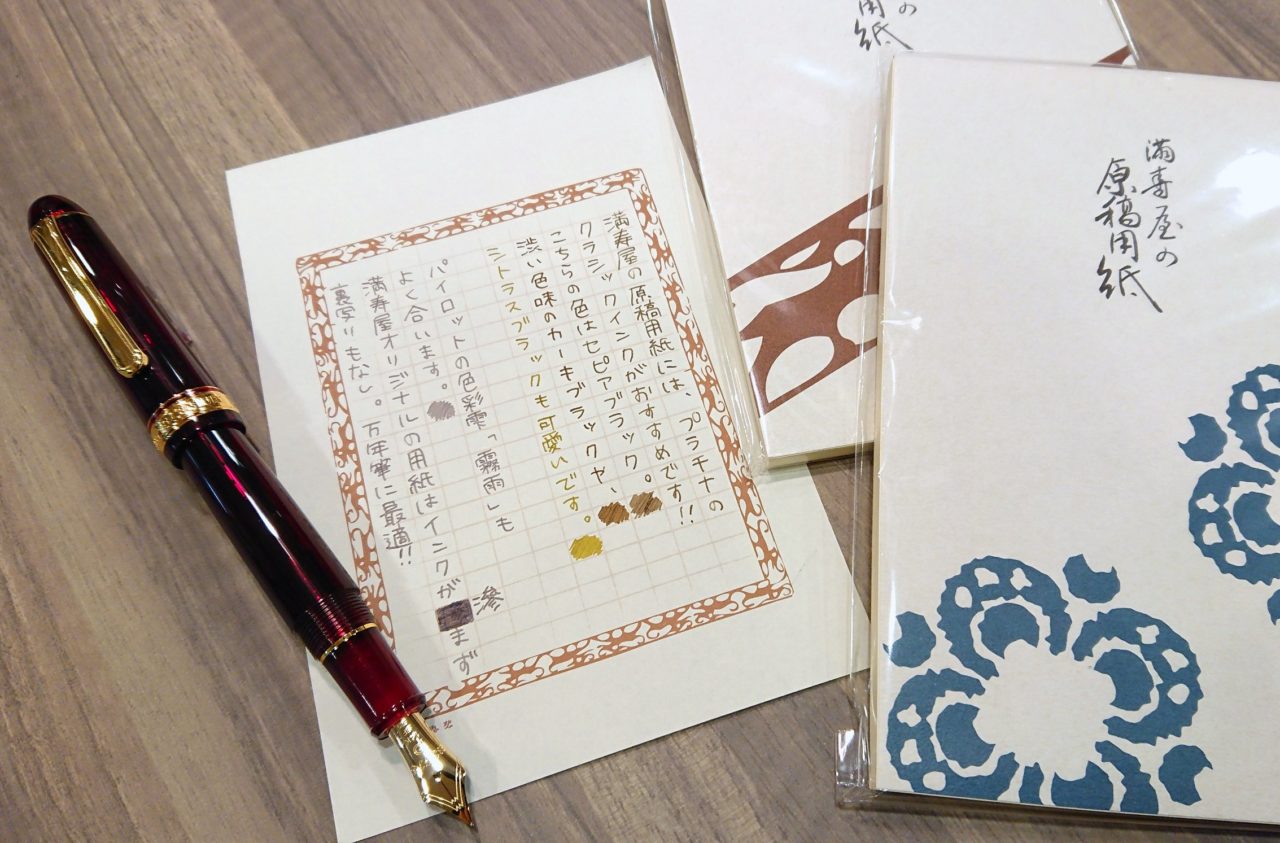 満寿屋の原稿用紙には、プラチナの
クラシックインクがおすすめです!!
こちらの色はセピアブラック。
渋い色味のカーキブラックや、
シトラスブラックも可愛いです。
パイロットの色彩雫「霧雨」も
よく合います。
満寿屋オリジナルの用紙はインクが滲まず
裏写りもなし。万年筆に最適!!
の
用紙
満寿屋の
原稿用紙